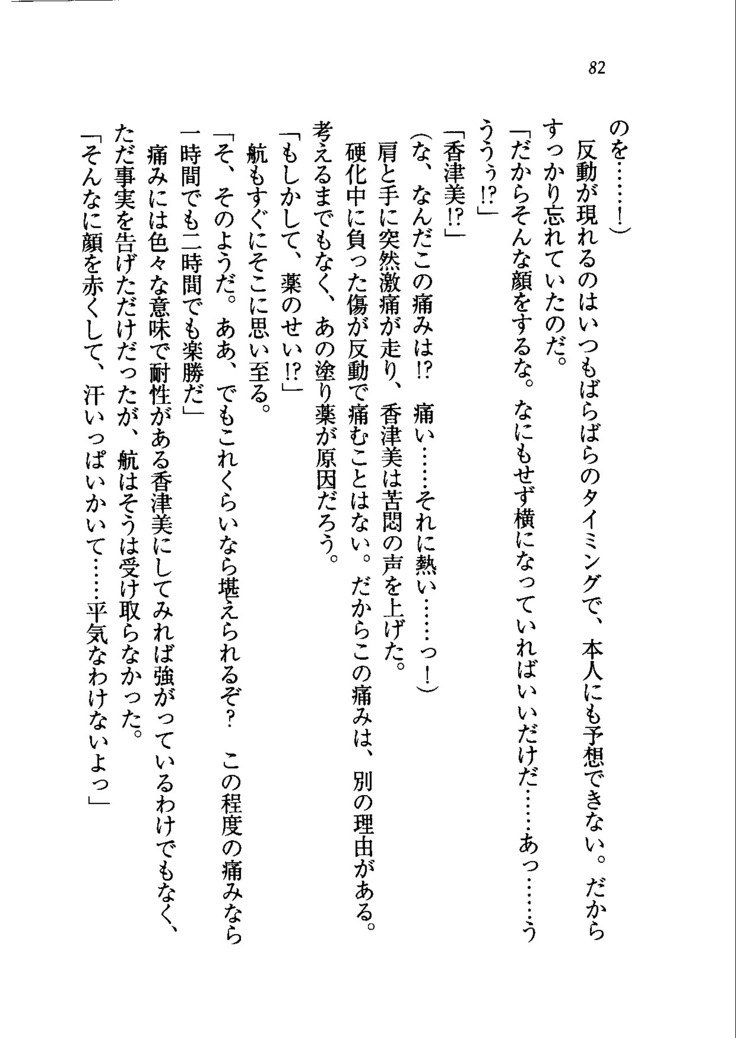 82
のを……！）
　反動が現れるのはいつもばらばらのタイミングで、本人にも予想できない。だから
すっかり忘れていたのだ。
「だからそんな顔をするな。なにもせず横になっていればいいだけだ……あっ……う
ううぅ!?」
「香津美!?」
（な、なんだこの痛みは!?　痛い……それに熱い……っ！）
　肩と手に突然激痛が走り、香津美は苦悶の声を上げた。
　硬化中に負った傷が反動で痛むことはない。だからこの痛みは、別の理由がある。
考えるまでもなく、あの塗り薬が原因だろう。
「もしかして、薬のせい!?」
　航もすぐにそこに思い至る。
「そ、そのようだ。ああ、でもこれくらいなら堪えられるぞ？　この程度の痛みなら
一時間でも二時間でも楽勝だ」
　痛みには色々な意味で耐性がある香津美にしてみれば強がっているわけでもなく、
ただ事実を告げただけだったが、航はそうは受け取らなかった。
「そんなに顔を赤くして、汗いっぱいかいて……平気なわけないよっ」